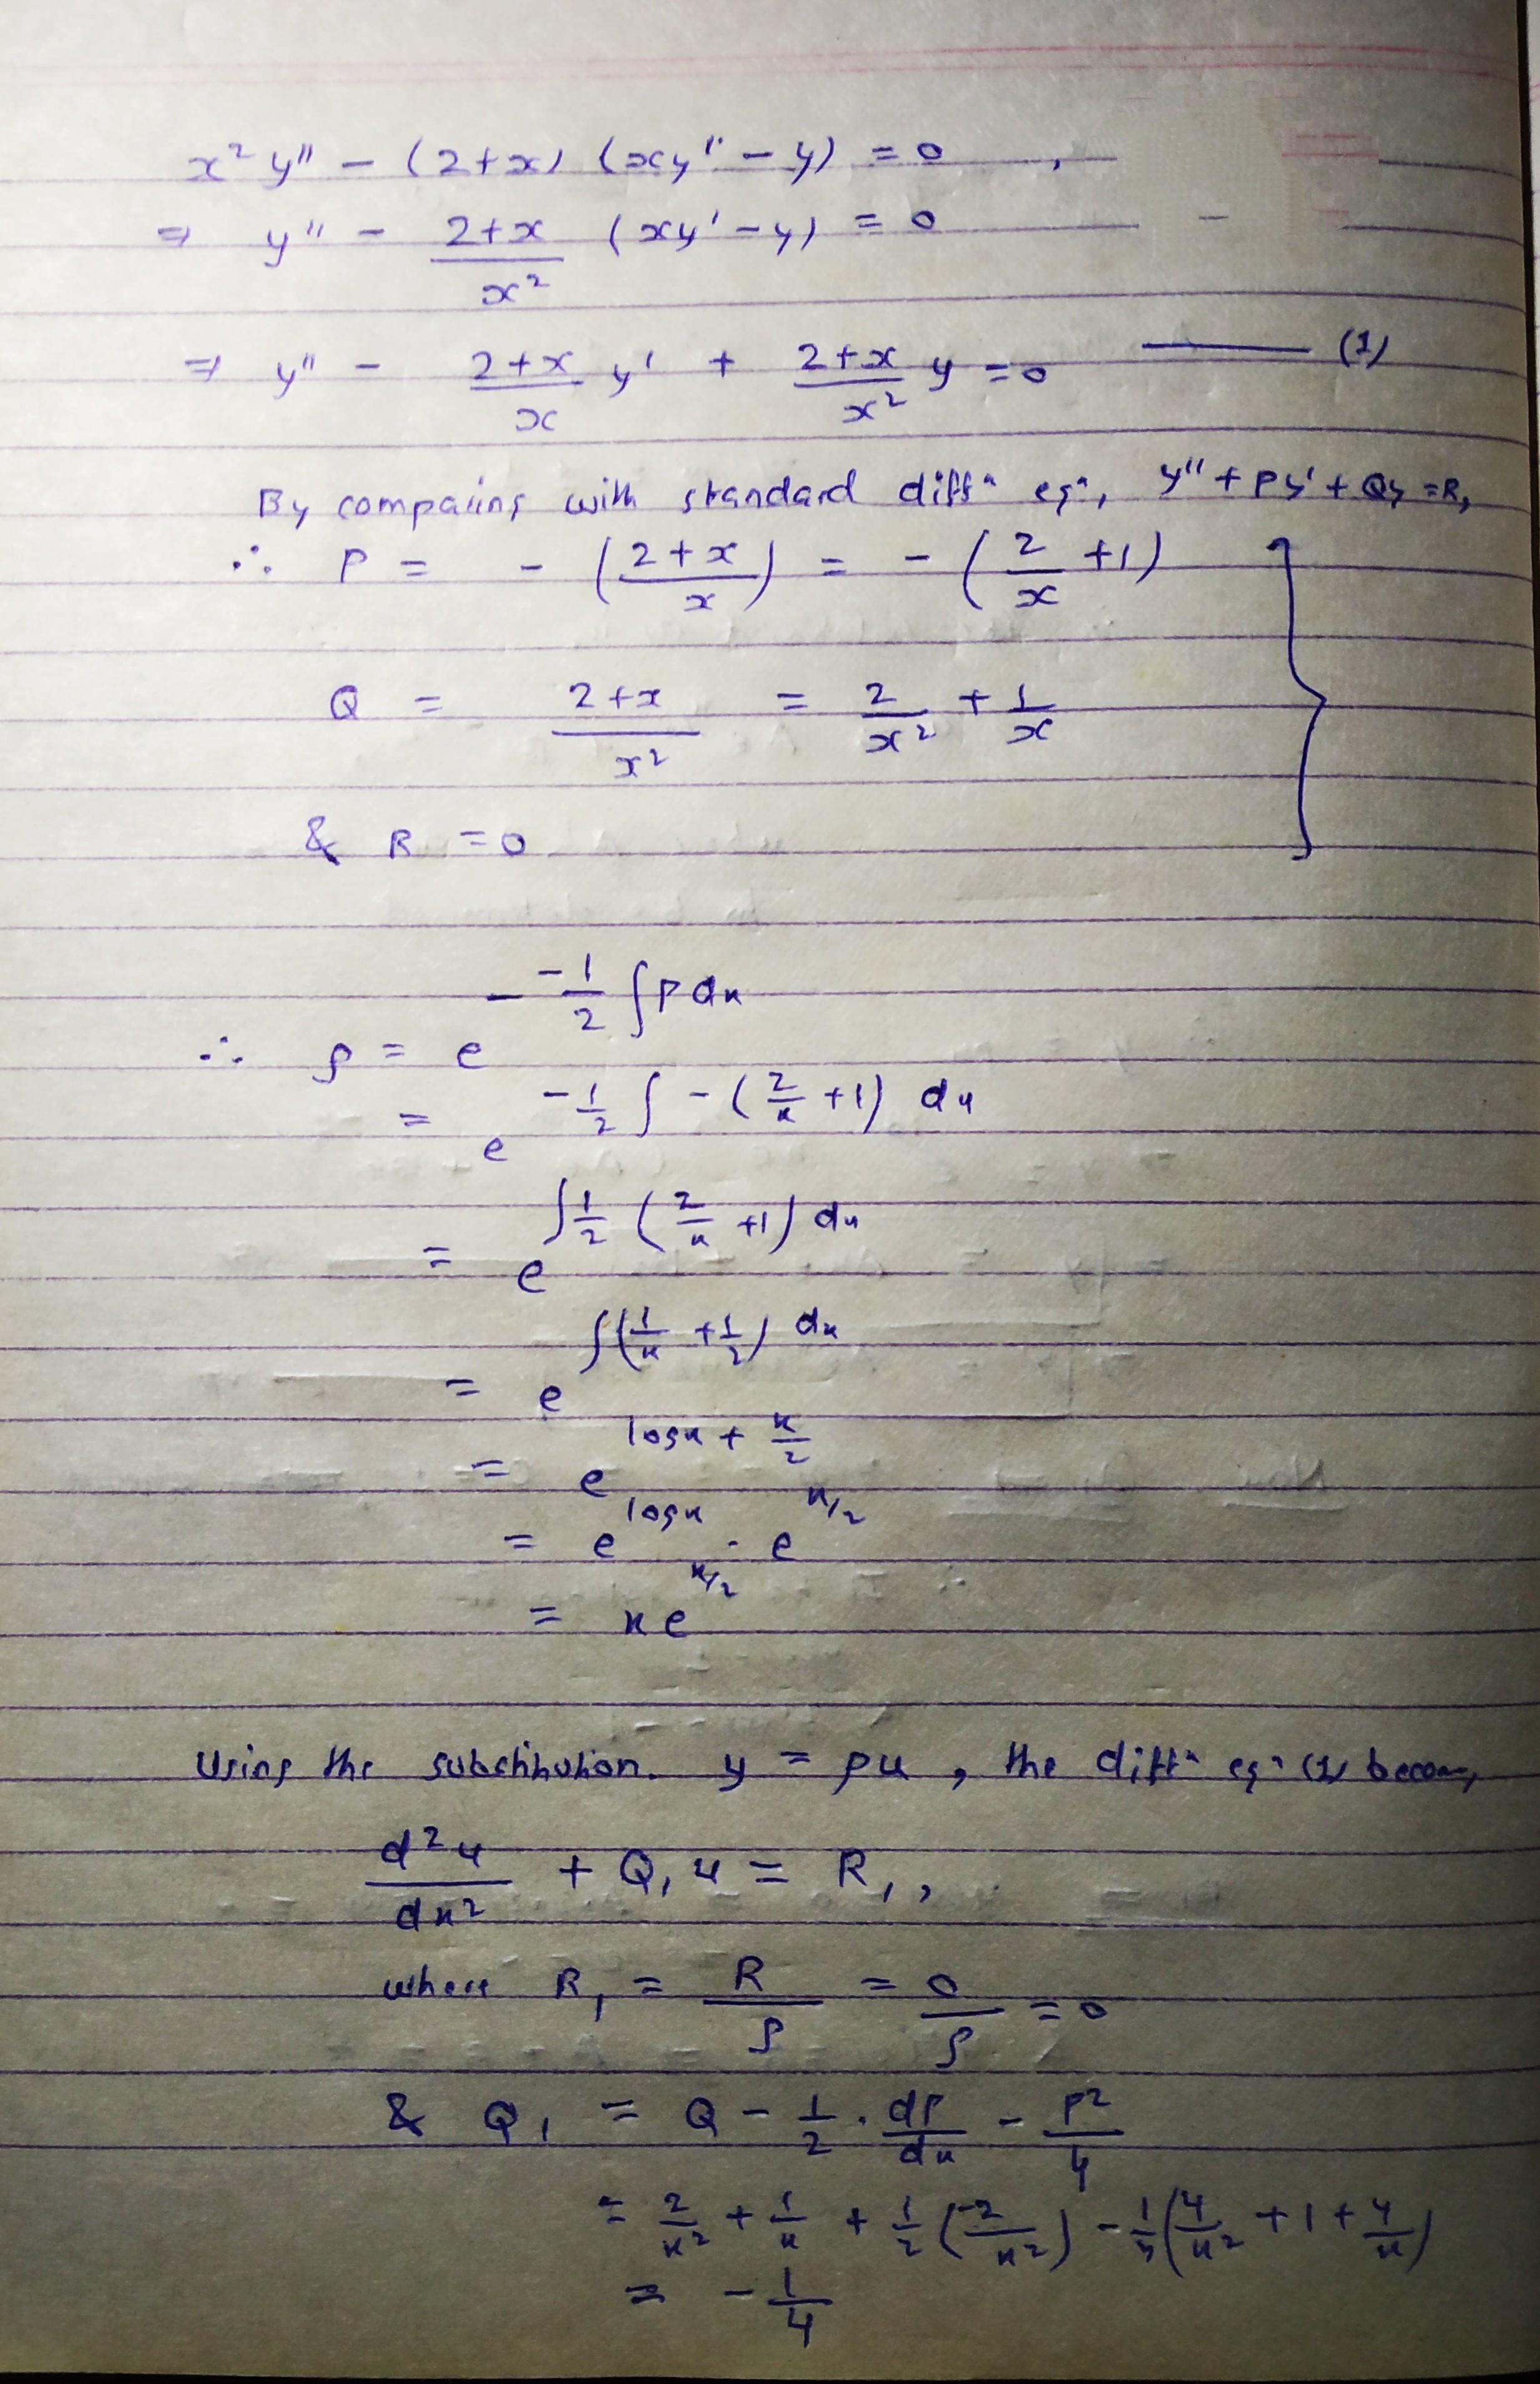 x² y'' - (2+x) (xy'' - y) = 0 ,
⇒ y'' - (2+x)/x² (xy' - y) = 0 -
⇒ y'' - (2+x)/x y' + (2+x)/x² y = 0 —— (1)
By comparing with standard diffⁿ eqⁿ, y'' + Py' + Qy = R,
∴ P = - ((2+x)/x) = - (2/x + 1)
Q = (2+x)/x² = 2/x² + 1/x
& R = 0
∴ ρ = e^(-1/2 ∫P dx)
= e^(-1/2 ∫ -(2/x + 1) dx)
= e^(∫ 1/2 (2/x + 1) dx)
= e^(∫(1/x + 1/2) dx)
= e^(log x + x/2)
= e^(log x) · e^(x/2)
= x e^(x/2)
Using the substitution. y = ρu, the diffⁿ eqⁿ (1) becomes
d²u/dx² + Q₁u = R₁,
where R₁ = R/ρ = 0/ρ = 0
& Q₁ = Q - 1/2 · dP/dx - P²/4
= 2/x² + 1/x + 1/2 (-2/x²) - 1/4 (4/x² + 1 + 4/x)
= -1/4